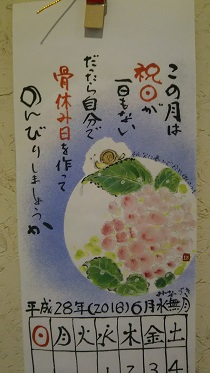 この月は
祝日が
一日もない
だったら自分で
骨休み日を作って
のんびりしましょうか
みなづき
平成28年(2016)6月水無月
日月火水木金土
1 2 3 4